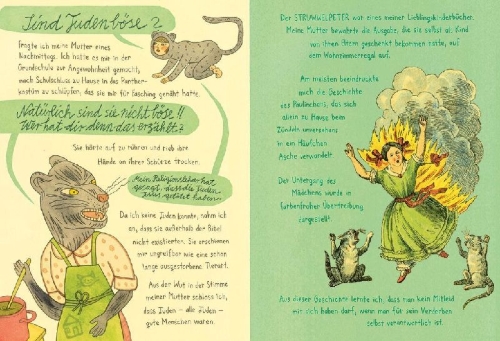 Sind Juden böse?
fragte ich meine Mutter eines
Nachmittags. Ich hatte es mir in der
Grundschule zur Angewohnheit gemacht,
nach Schulschluss zu Hause in das Panther-
kostüm zu schlüpfen, das sie mir für Fasching genäht hatte.
Natürlich sind sie nicht böse!!
Wer hat dir denn das erzählt?
Sie hörte auf zu rühren und rieb ihre
Hände an ihrer Schürze trocken.
Mein Religionslehrer hat
gesagt, dass die Juden
Jesus getötet haben.
Da ich keine Juden kannte, nahm ich
an, dass sie außerhalb der Bibel
nicht existierten. Sie erschienen
mir ungreifbar wie eine schon
lange ausgestorbene Tierart.
Aus der Wut in der Stimme
meiner Mutter schloss ich,
dass Juden – alle Juden –
gute Menschen waren.
Der STRUWWELPETER war eines meiner Lieblingskinderbücher.
Meine Mutter bewahrte die Ausgabe, die sie selbst als Kind
von ihren Eltern geschenkt bekommen hatte, auf
dem Wohnzimmerregal auf.
Am meisten beeindruckte
mich die Geschichte
von Paulinchen, das sich
allein zu Hause beim
Zündeln unversehens
in ein Häuflein
Asche verwandelt.
Der Untergang des
Mädchens wurde in
farbenfroher Übertreibung
dargestellt.
Aus dieser Geschichte lernte ich, dass man kein Mitleid
mit sich haben darf, wenn man für sein Verderben
selbst verantwortlich ist.